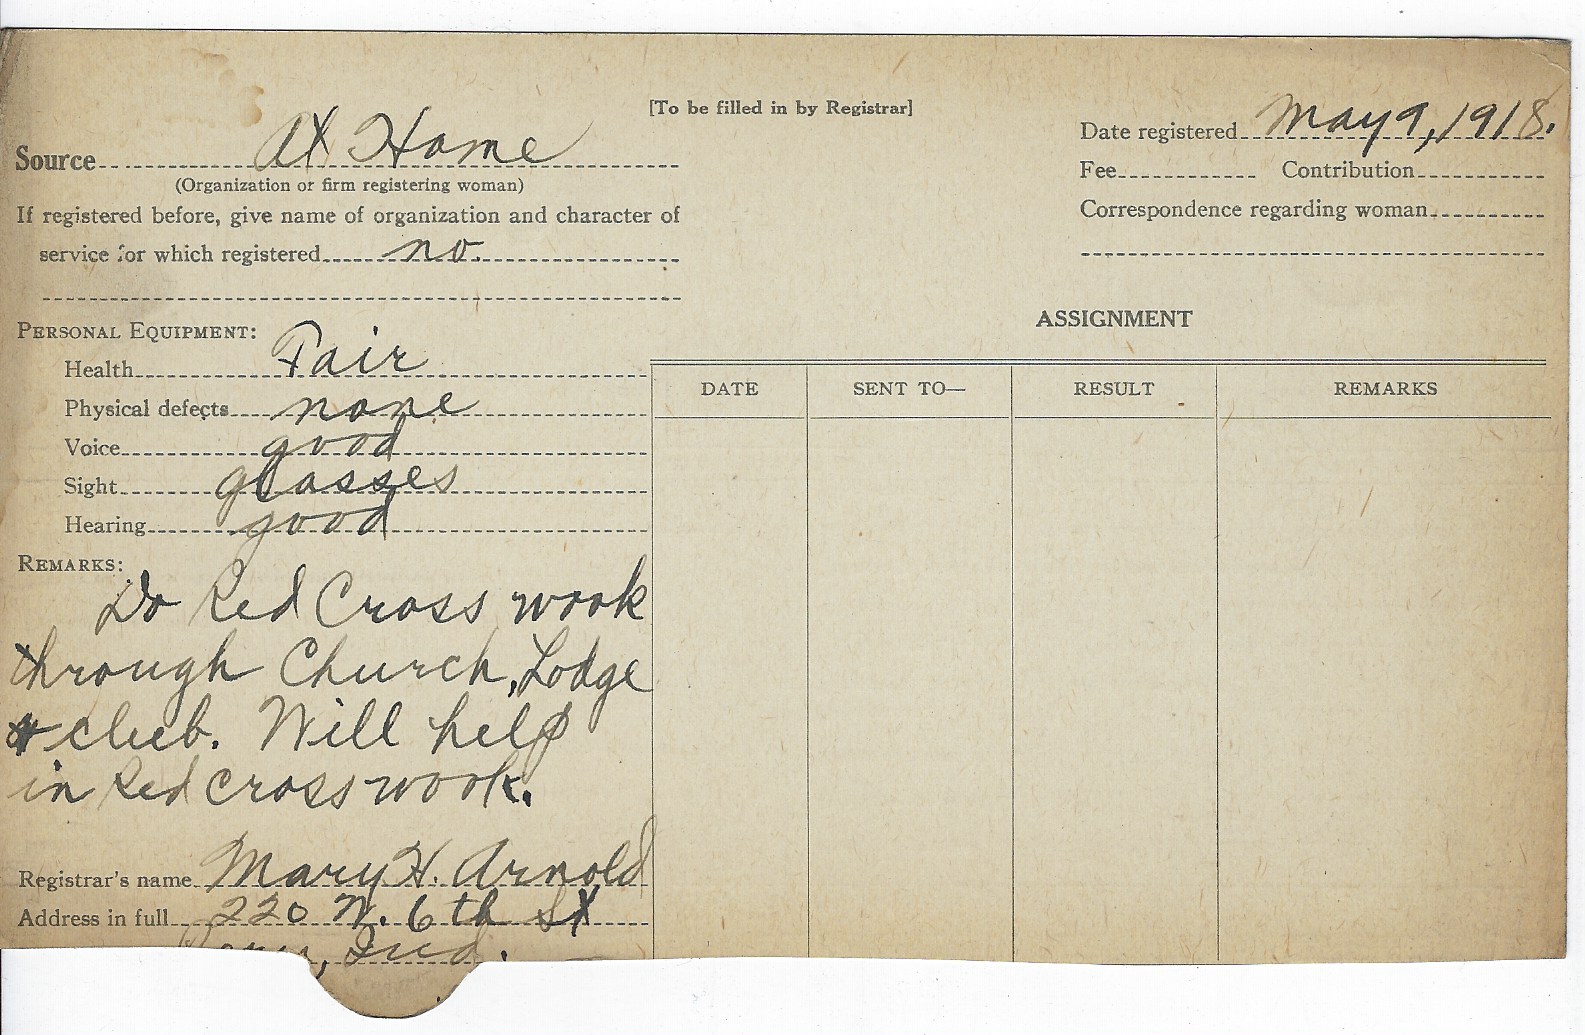 [To be filled in by Registrar]
Source At Home
(Organization or firm registering woman)
If registered before, give name of organization and character of
service for which registered no.
Date registered May 9, 1918.
Fee Contribution
Correspondence regarding woman
PERSONAL EQUIPMENT:
Health Fair
Physical defects none
Voice good
Sight glasses
Hearing good
REMARKS:
Do Red Cross work
through Church, Lodge
& club. Will help
in Red Cross work.
Registrar's name Mary H. Arnold
Address in full 220 W. 6th St
Peru, Ind.
ASSIGNMENT
DATE SENT TO— RESULT REMARKS